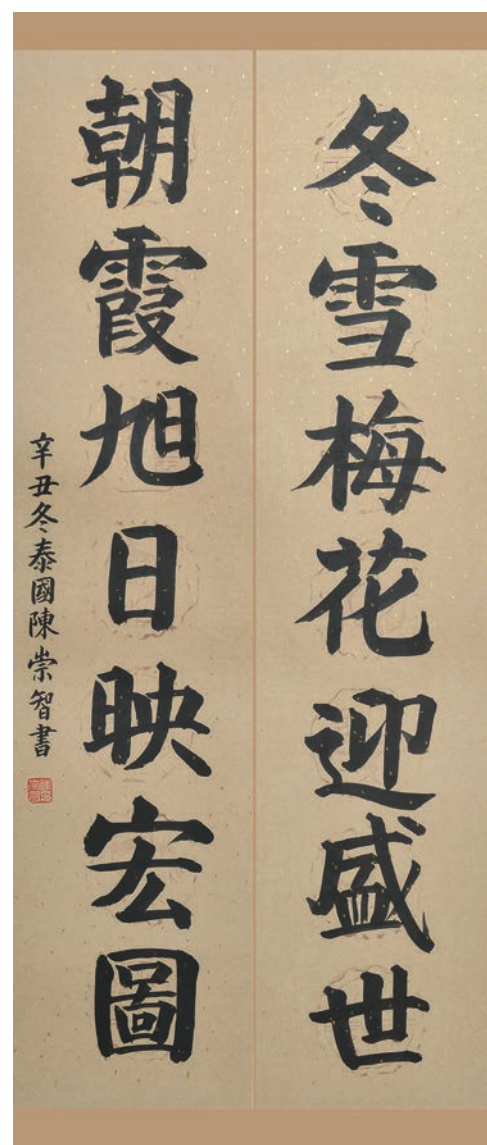 冬雪梅花迎盛世
朝霞旭日映宏圖
辛丑冬泰國陳崇智書